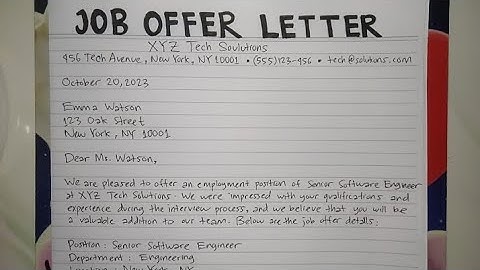 JOB OFFER LETTER
XYZ Tech Soulutions
456 Tech Avenue, New York, NY 10001 • (555)123-456 • tech@solutions.com
October 20, 2023
Emma Watson
123 Oak Street
New York, NY 10001
Dear Ms. Watson,
We are pleased to offer an employment position of Senior Software Engineer
at XYZ Tech Solutions. We were impressed with your qualifications and
experience during the interview process, and we believe that you will be
a valuable addition to our team. Below are the job offer details.
Position: Senior Software Engineer
Department: Engineering
Location: New York, NY